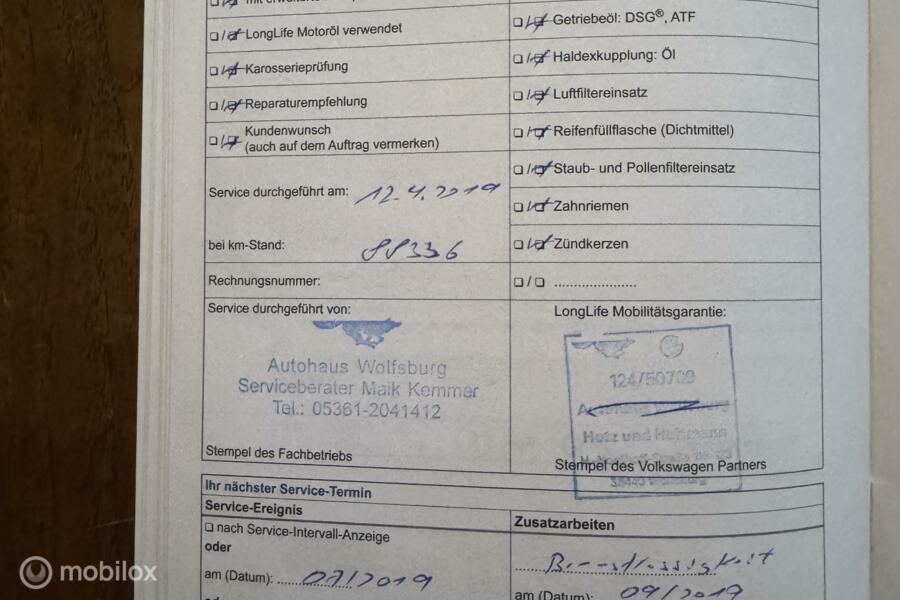 LongLife Motoröl verwendet
Karosserieprüfung
Reparaturempfehlung
Kundenwunsch
(auch auf dem Auftrag vermerken)
Service durchgeführt am: 12.4.2019
bei km-Stand: 88336
Rechnungsnummer:
Service durchgeführt von:
Autohaus Wolfsburg
Serviceberater Maik Kemmer
Tel.: 05361-2041412
Stempel des Fachbetriebs
Getriebeöl: DSG®, ATF
Haldexkupplung: Öl
Luftfiltereinsatz
Reifenfüllflasche (Dichtmittel)
Staub- und Pollenfiltereinsatz
Zahnriemen
Zündkerzen
LongLife Mobilitätsgarantie:
124/50709
Hotz und Heitmann
Stempel des Volkswagen Partners
Ihr nächster Service-Termin
Service-Ereignis
nach Service-Intervall-Anzeige
oder
am (Datum): 07/2019
Zusatzarbeiten
Bremsflüssigkeit
am (Datum): 09/2019
mobilox